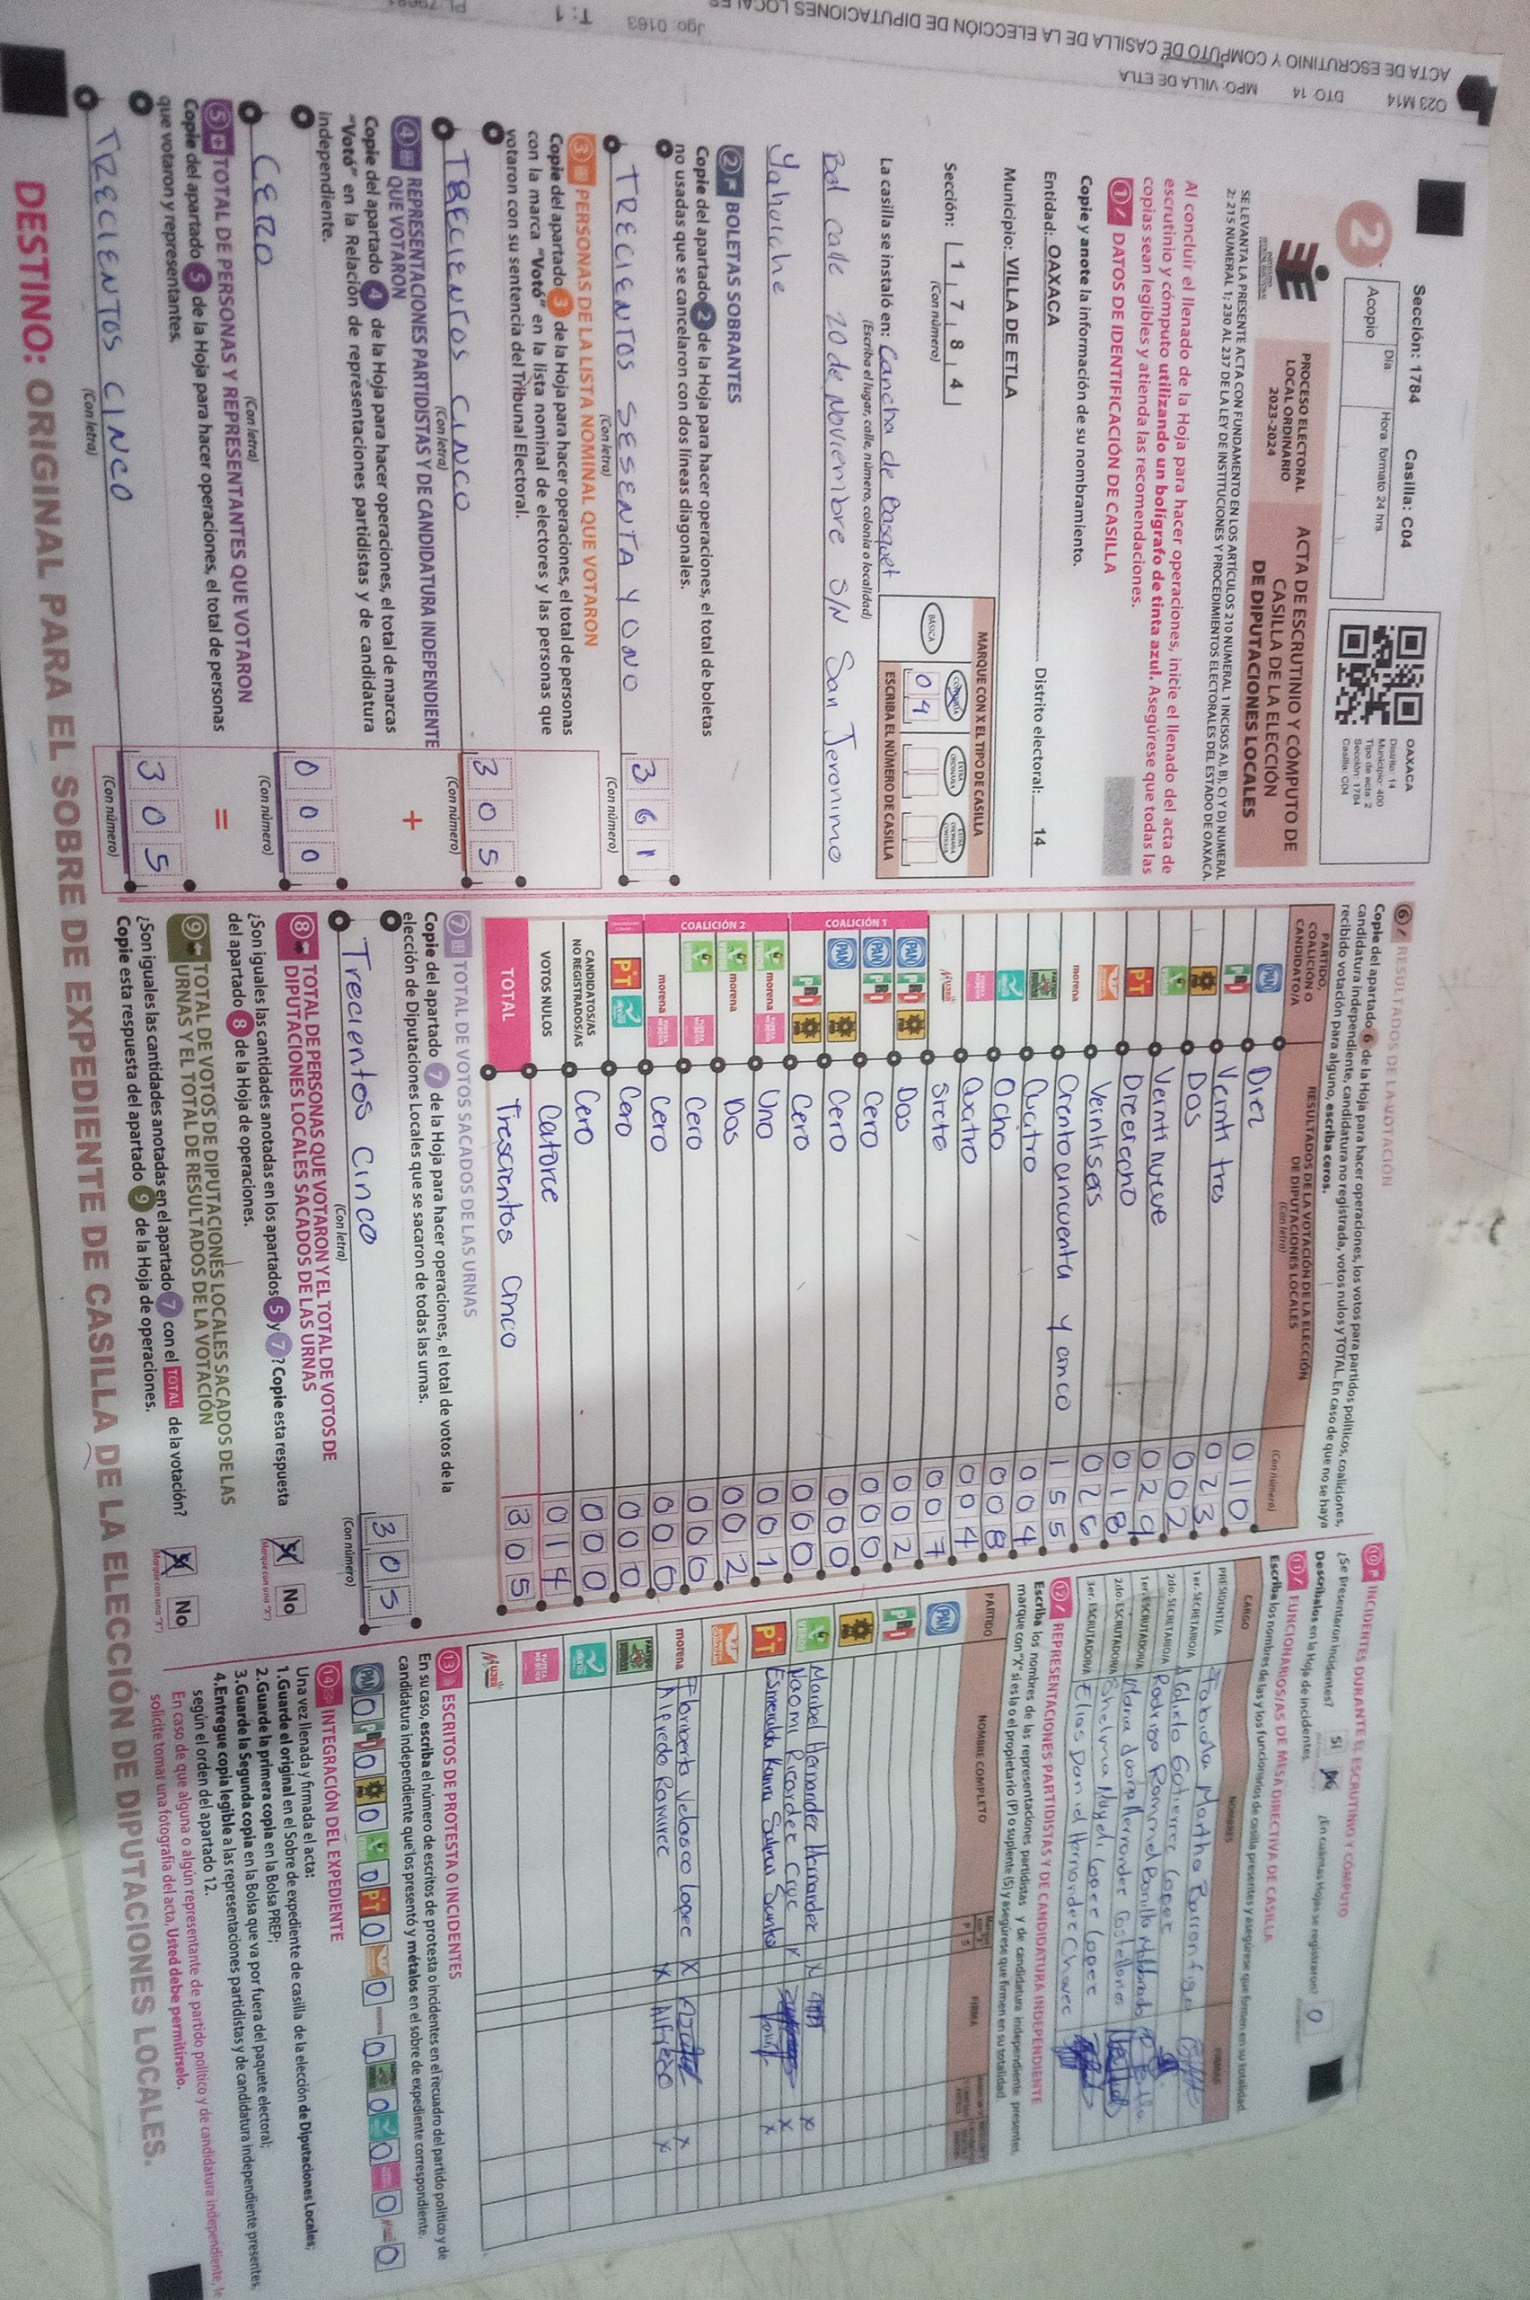 Sección: 1784 Casilla: C04
2
Acopio
Día
Hora: formato 24 hrs.
OAXACA
Distrito: 14
Municipio: 400
Tipo de acta: 2
Sección: 1784
Casilla: C04
PROCESO ELECTORAL
LOCAL ORDINARIO
2023-2024
ACTA DE ESCRUTINIO Y CÓMPUTO DE
CASILLA DE LA ELECCIÓN
DE DIPUTACIONES LOCALES
SE LEVANTA LA PRESENTE ACTA CON FUNDAMENTO EN LOS ARTÍCULOS 210 NUMERAL 1 INCISOS A), B), C) Y D) NUMERAL
2; 215 NUMERAL 1; 230 AL 237 DE LA LEY DE INSTITUCIONES Y PROCEDIMIENTOS ELECTORALES DEL ESTADO DE OAXACA.
Al concluir el llenado de la Hoja para hacer operaciones, inicie el llenado del acta de
escrutinio y cómputo utilizando un bolígrafo de tinta azul. Asegúrese que todas las
copias sean legibles y atienda las recomendaciones.
1 DATOS DE IDENTIFICACIÓN DE CASILLA
Copie y anote la información de su nombramiento.
Entidad: OAXACA Distrito electoral: 14
Municipio: VILLA DE ETLA
Sección: 1 7 8 4
(Con número)
MARQUE CON X EL TIPO DE CASILLA
BÁSICA
0 4
ESCRIBA EL NÚMERO DE CASILLA
La casilla se instaló en: Cancha de Basquet
(Escriba el lugar, calle, número, colonia o localidad)
Bal calle 20 de Noviembre S/N San Jeronimo
Yahuiche
2 BOLETAS SOBRANTES
Copie del apartado 2 de la Hoja para hacer operaciones, el total de boletas
no usadas que se cancelaron con dos líneas diagonales.
TRECIENTOS SESENTA Y UNO 3 6 1
(Con letra) (Con número)
3 PERSONAS DE LA LISTA NOMINAL QUE VOTARON
Copie del apartado 3 de la Hoja para hacer operaciones, el total de personas
con la marca "Votó" en la lista nominal de electores y las personas que
votaron con su sentencia del Tribunal Electoral.
TRECIENTOS CINCO 3 0 5
(Con letra) (Con número)
4 REPRESENTACIONES PARTIDISTAS Y DE CANDIDATURA INDEPENDIENTE
QUE VOTARON
+
Copie del apartado 4 de la Hoja para hacer operaciones, el total de marcas
"Votó" en la Relación de representaciones partidistas y de candidatura
independiente.
CERO 0 0 0
(Con letra) (Con número)
5 TOTAL DE PERSONAS Y REPRESENTANTES QUE VOTARON
=
Copie del apartado 5 de la Hoja para hacer operaciones, el total de personas
que votaron y representantes.
TRECIENTOS CINCO 3 0 5
(Con letra) (Con número)
6 RESULTADOS DE LA VOTACIÓN
Copie del apartado 6 de la Hoja para hacer operaciones, los votos para partidos políticos, coaliciones,
candidatura independiente, candidatura no registrada, votos nulos y TOTAL. En caso de que no se haya
recibido votación para alguno, escriba ceros.
PARTIDO,
COALICIÓN O
CANDIDATO/A
RESULTADOS DE LA VOTACIÓN DE LA ELECCIÓN
DE DIPUTACIONES LOCALES
(Con letra)
(Con número)
PAN Diez 0 1 0
PRI Veinti tres 0 2 3
Dos 0 0 2
Veinti nueve 0 2 9
PT Dieciocho 0 1 8
Veintiseis 0 2 6
morena Ciento cincuenta y cinco 1 5 5
Cuatro 0 0 4
Ocho 0 0 8
Cuatro 0 0 4
Siete 0 0 7
COALICIÓN 1
PAN PRI Dos 0 0 2
PAN PRI Cero 0 0 0
PAN Cero 0 0 0
PRI Cero 0 0 0
COALICIÓN 2
morena Uno 0 0 1
morena Dos 0 0 2
Cero 0 0 0
morena Cero 0 0 0
PT Cero 0 0 0
CANDIDATOS/AS
NO REGISTRADOS/AS Cero 0 0 0
VOTOS NULOS Catorce 0 1 4
TOTAL Trescientos cinco 3 0 5
7 TOTAL DE VOTOS SACADOS DE LAS URNAS
Copie del apartado 7 de la Hoja para hacer operaciones, el total de votos de la
elección de Diputaciones Locales que se sacaron de todas las urnas.
Trecientos cinco 3 0 5
(Con letra) (Con número)
8 TOTAL DE PERSONAS QUE VOTARON Y EL TOTAL DE VOTOS DE
DIPUTACIONES LOCALES SACADOS DE LAS URNAS
¿Son iguales las cantidades anotadas en los apartados 5 y 7? Copie esta respuesta
del apartado 8 de la Hoja de operaciones.
Sí No
(Marque con una "X")
9 TOTAL DE VOTOS DE DIPUTACIONES LOCALES SACADOS DE LAS
URNAS Y EL TOTAL DE RESULTADOS DE LA VOTACIÓN
¿Son iguales las cantidades anotadas en el apartado 7 con el TOTAL de la votación?
Copie esta respuesta del apartado 9 de la Hoja de operaciones.
Sí No
(Marque con una "X")
10 INCIDENTES DURANTE EL ESCRUTINIO Y CÓMPUTO
¿Se presentaron incidentes? Sí No ¿En cuántas Hojas se registraron? 0
Descríbalos en la Hoja de incidentes.
11 FUNCIONARIOS/AS DE MESA DIRECTIVA DE CASILLA
Escriba los nombres de las y los funcionarios de casilla presentes y asegúrese que firmen en su totalidad.
CARGO NOMBRES FIRMAS
PRESIDENTE/A Martha
1er. SECRETARIO/A Gutierrez Lopez
2do. SECRETARIO/A Rodrigo Bonilla
1er. ESCRUTADOR/A Maria Hernandez Castellanos
2do. ESCRUTADOR/A Lopez Lopez
3er. ESCRUTADOR/A Elias Daniel Hernandez Chavez
12 REPRESENTACIONES PARTIDISTAS Y DE CANDIDATURA INDEPENDIENTE
Escriba los nombres de las representaciones partidistas y de candidatura independiente presentes,
marque con "X" si es la o el propietario (P) o suplente (S) y asegúrese que firmen en su totalidad.
PARTIDO NOMBRE COMPLETO P S FIRMA
PAN
PRI
VERDE Maribel Hernandez Hernandez X X
Naomi Ricardez Cruz X X
PT Esmeralda Karina X
morena Floriberta Velasco Lopez X X
Alfredo Ramirez X Alfredo X
13 ESCRITOS DE PROTESTA O INCIDENTES
En su caso, escriba el número de escritos de protesta o incidentes en el recuadro del partido político y de
candidatura independiente que los presentó y métalos en el sobre de expediente correspondiente.
PAN 0 PRI 0 0 0 PT 0 0 0 0 0 0 0
14 INTEGRACIÓN DEL EXPEDIENTE
Una vez llenada y firmada el acta:
1. Guarde el original en el Sobre de expediente de casilla de la elección de Diputaciones Locales;
2. Guarde la primera copia en la Bolsa PREP;
3. Guarde la Segunda copia en la Bolsa que va por fuera del paquete electoral;
4. Entregue copia legible a las representaciones partidistas y de candidatura independiente presentes,
según el orden del apartado 12.
En caso de que alguna o algún representante de partido político y de candidatura independiente, le
solicite tomar una fotografía del acta, Usted debe permitírselo.
DESTINO: ORIGINAL PARA EL SOBRE DE EXPEDIENTE DE CASILLA DE LA ELECCIÓN DE DIPUTACIONES LOCALES.
023 M14 DTO 14 MPO: VILLA DE ETLA
ACTA DE ESCRUTINIO Y COMPUTO DE CASILLA DE LA ELECCIÓN DE DIPUTACIONES LOCALES
Jgo: 0163 T: 1